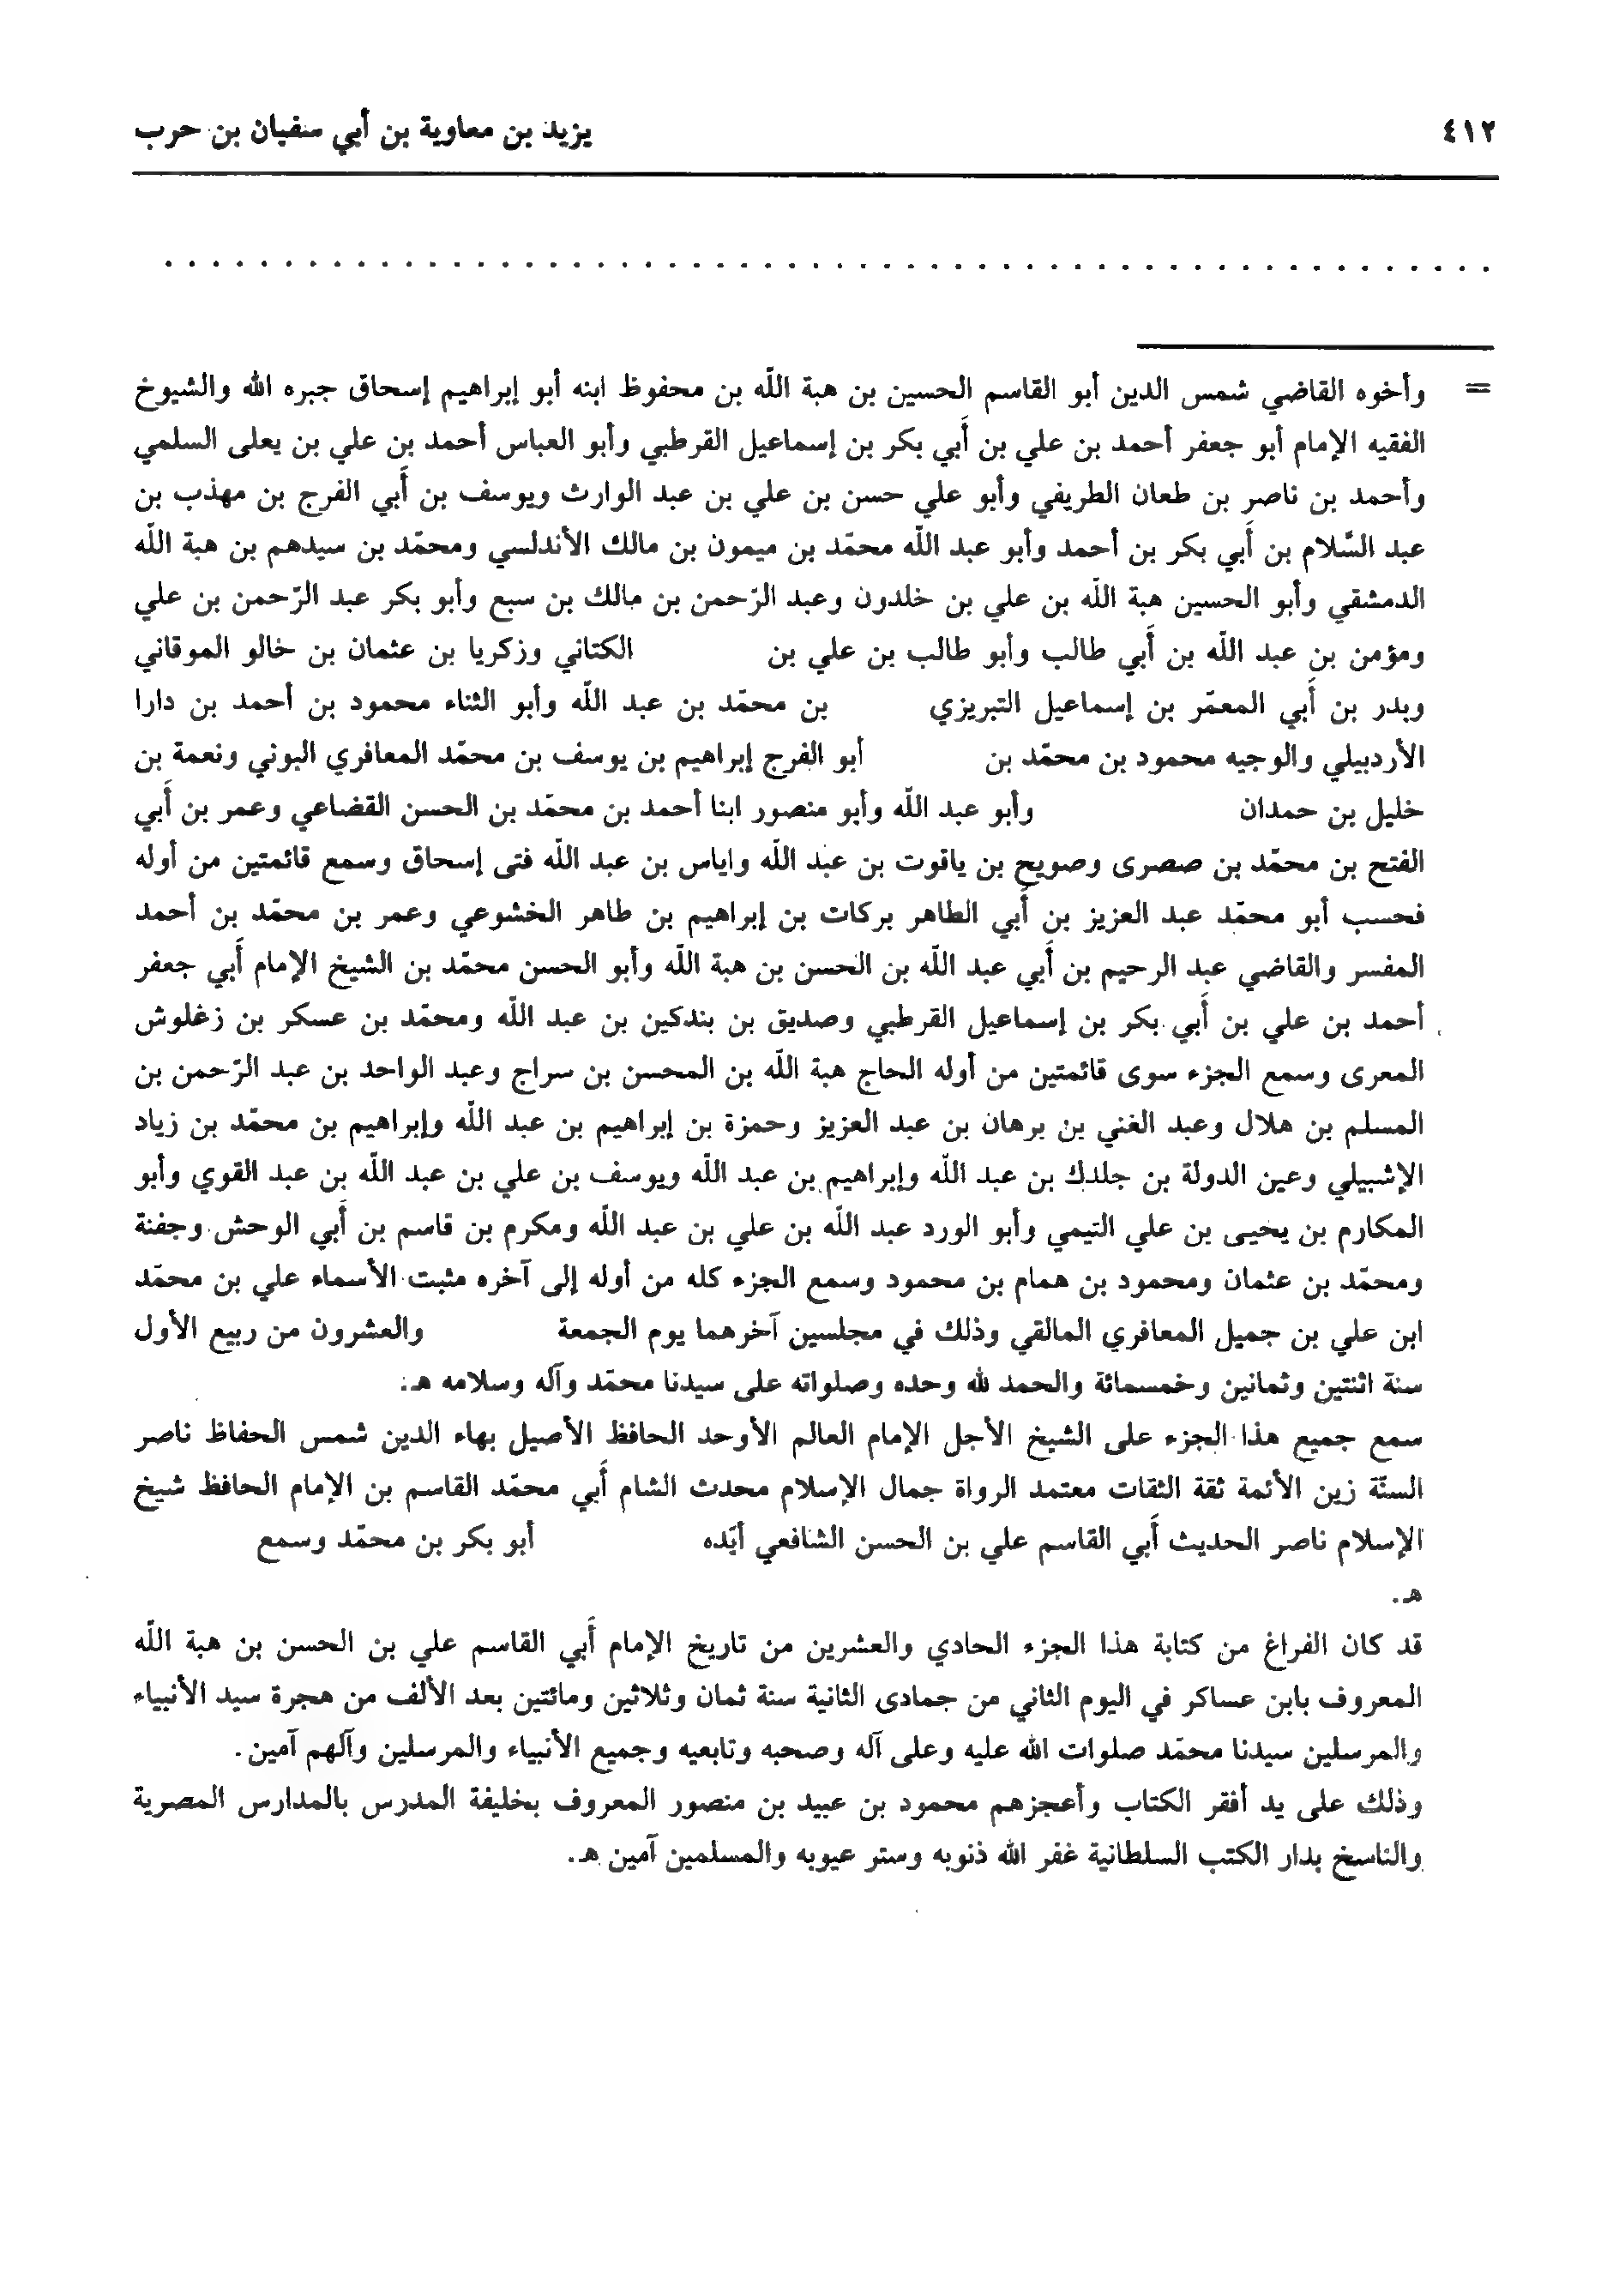 ٤١٢
يزيد بن معاوية بن أبي سفيان بن حرب
. . . . . . . . . . . . . . . . . . . . . . . . . . . . . . . . . . . . . . . . . . . . . . . . . . . . . . . .
= وأخوه القاضي شمس الدين أبو القاسم الحسين بن هبة اللّه بن محفوظ ابنه أبو إبراهيم إسحاق جبره الله والشيوخ
الفقيه الإمام أبو جعفر أحمد بن علي بن أَبي بكر بن إسماعيل القرطبي وأبو العباس أحمد بن علي بن يعلى السلمي
وأحمد بن ناصر بن طعان الطريفي وأبو علي حسن بن علي بن عبد الوارث ويوسف بن أَبي الفرج بن مهذب بن
عبد السَّلام بن أَبي بكر بن أحمد وأبو عبد اللّه محمّد بن ميمون بن مالك الأندلسي ومحمّد بن سيدهم بن هبة اللّه
الدمشقي وأبو الحسين هبة اللّه بن علي بن خلدون وعبد الرّحمن بن مالك بن سبع وأبو بكر عبد الرّحمن بن علي
ومؤمن بن عبد اللّه بن أَبي طالب وأبو طالب بن علي بن الكتاني وزكريا بن عثمان بن خالو الموقاني
وبدر بن أَبي المعمّر بن إسماعيل التبريزي بن محمّد بن عبد اللّه وأبو الثناء محمود بن أحمد بن دارا
الأردبيلي والوجيه محمود بن محمّد بن أبو الفرج إبراهيم بن يوسف بن محمّد المعافري البوني ونعمة بن
خليل بن حمدان وأبو عبد اللّه وأبو منصور ابنا أحمد بن محمّد بن الحسن القضاعي وعمر بن أَبي
الفتح بن محمّد بن صصرى وصويح بن ياقوت بن عبد اللّه واياس بن عبد اللّه فتى إسحاق وسمع قائمتين من أوله
فحسب أبو محمّد عبد العزيز بن أَبي الطاهر بركات بن إبراهيم بن طاهر الخشوعي وعمر بن محمّد بن أحمد
المفسر والقاضي عبد الرحيم بن أَبي عبد اللّه بن الحسن بن هبة اللّه وأبو الحسن محمّد بن الشيخ الإمام أَبي جعفر
أحمد بن علي بن أَبي بكر بن إسماعيل القرطبي وصديق بن بندكين بن عبد اللّه ومحمّد بن عسكر بن زغلوش
المعرى وسمع الجزء سوى قائمتين من أوله الحاج هبة اللّه بن المحسن بن سراج وعبد الواحد بن عبد الرّحمن بن
المسلم بن هلال وعبد الغني بن برهان بن عبد العزيز وحمزة بن إبراهيم بن عبد اللّه وإبراهيم بن محمّد بن زياد
الإشبيلي وعين الدولة بن جلدك بن عبد اللّه وإبراهيم بن عبد اللّه ويوسف بن علي بن عبد اللّه بن عبد القوي وأبو
المكارم بن يحيى بن علي التيمي وأبو الورد عبد اللّه بن علي بن عبد اللّه ومكرم بن قاسم بن أَبي الوحش وجفنة
ومحمّد بن عثمان ومحمود بن همام بن محمود وسمع الجزء كله من أوله إلى آخره مثبت الأسماء علي بن محمّد
ابن علي بن جميل المعافري المالقي وذلك في مجلسين آخرهما يوم الجمعة والعشرون من ربيع الأول
سنة اثنتين وثمانين وخمسمائة والحمد لله وحده وصلواته على سيدنا محمّد وآله وسلامه هـ.
سمع جميع هذا الجزء على الشيخ الأجل الإمام العالم الأوحد الحافظ الأصيل بهاء الدين شمس الحفاظ ناصر
السنّة زين الأئمة ثقة الثقات معتمد الرواة جمال الإسلام محدث الشام أَبي محمّد القاسم بن الإمام الحافظ شيخ
الإسلام ناصر الحديث أَبي القاسم علي بن الحسن الشافعي أيّده أبو بكر بن محمّد وسمع
هـ.
قد كان الفراغ من كتابة هذا الجزء الحادي والعشرين من تاريخ الإمام أَبي القاسم علي بن الحسن بن هبة اللّه
المعروف بابن عساكر في اليوم الثاني من جمادى الثانية سنة ثمان وثلاثين ومائتين بعد الألف من هجرة سيد الأنبياء
والمرسلين سيدنا محمّد صلوات الله عليه وعلى آله وصحبه وتابعيه وجميع الأنبياء والمرسلين وآلهم آمين.
وذلك على يد أفقر الكتاب وأعجزهم محمود بن عبيد بن منصور المعروف بخليفة المدرس بالمدارس المصرية
والناسخ بدار الكتب السلطانية غفر الله ذنوبه وستر عيوبه والمسلمين آمين هـ.